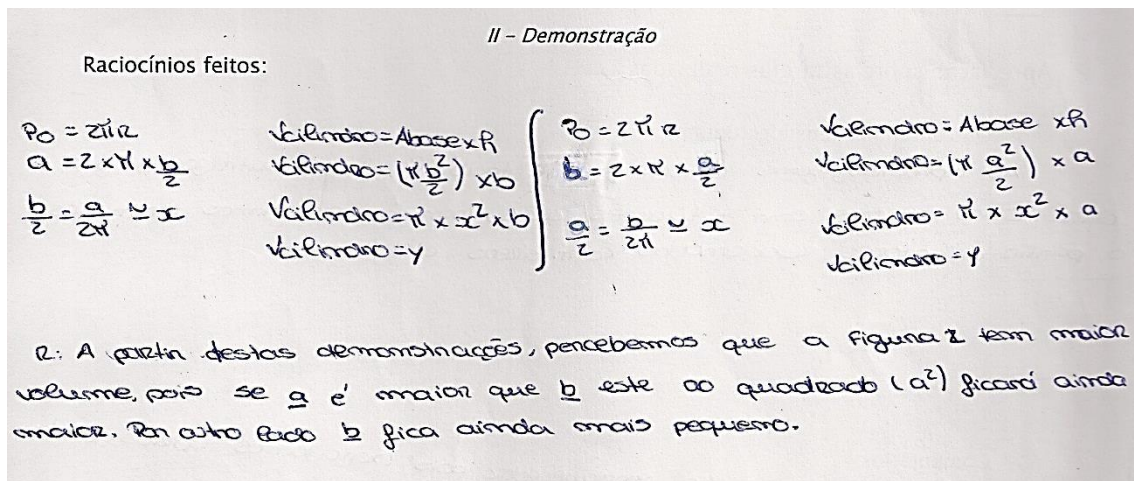 II – Demonstração
Raciocínios feitos:
P₀ = 2πr
a = 2 × π × b/2
b/2 = a/2π ≃ x
Vcilindro = Abase × h
Vcilindro = (π b²/2) × b
Vcilindro = π × x² × b
Vcilindro = y
P₀ = 2πr
b = 2 × π × a/2
a/2 = b/2π ≃ x
Vcilindro = Abase × h
Vcilindro = (π a²/2) × a
Vcilindro = π × x² × a
Vcilindro = y
R: A partir destas demonstrações, percebemos que a figura 1 tem maior
volume, pois se a é maior que b este ao quadrado (a²) ficará ainda
maior. Por outro lado b fica ainda mais pequeno.